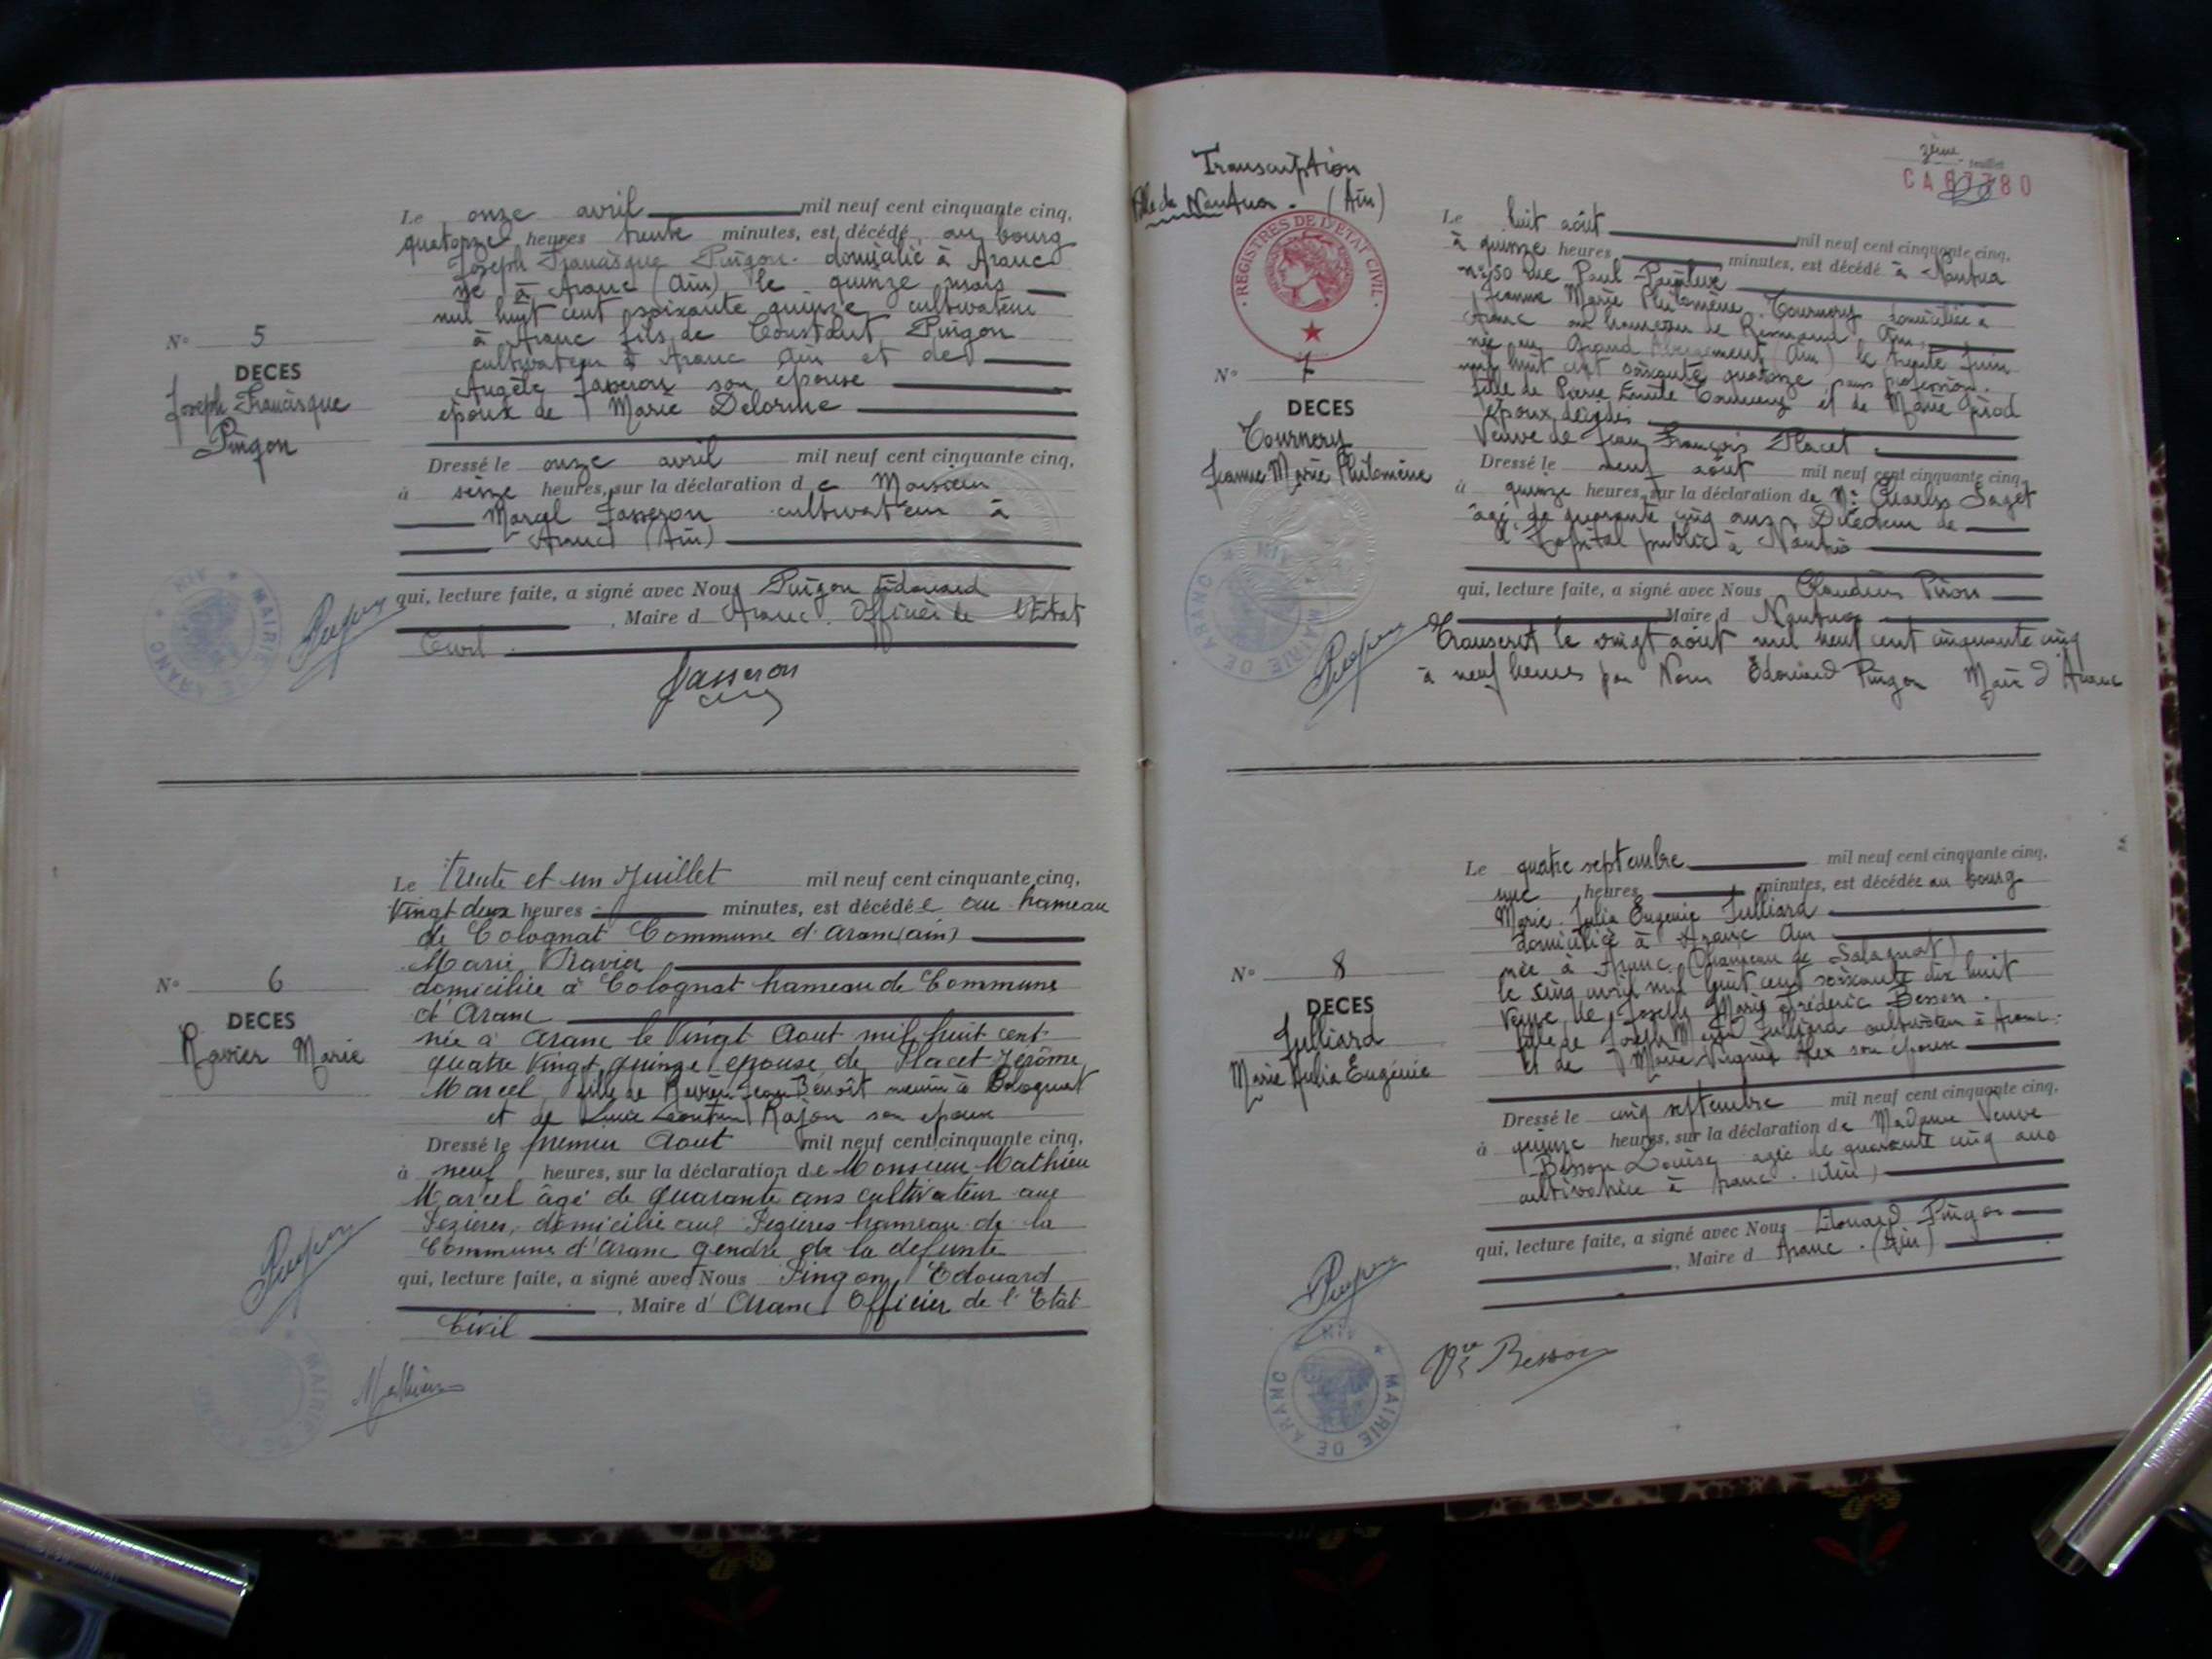 Le onze avril mil neuf cent cinquante cinq,
quatorze heures trente minutes, est décédé au bourg
Joseph Francisque Pingon domicilié à Aranc
né à Aranc (Ain) le quinze mars
mil huit cent soixante quinze cultivateur
à Aranc fils de Constant Pingon
cultivateur à Aranc Ain et de
Angèle Jasseron son épouse
époux de Marie Delorme
N° 5
DECES
Joseph Francisque
Pingon
Dressé le onze avril mil neuf cent cinquante cinq,
à seize heures, sur la déclaration de Monsieur
Marcel Jasseron cultivateur à
Aranc (Ain)
qui, lecture faite, a signé avec Nous Pingon Edouard
, Maire d Aranc. Officier de l'Etat
Civil
Jasseron
MAIRIE DE ARANC
AIN
Le Trente et un Juillet mil neuf cent cinquante cinq,
Vingt deux heures minutes, est décédée au hameau
de Colognat Commune d'Aranc (ain)
Marie Ravier
domiciliée à Colognat hameau de Commune
d'Aranc
née à Aranc le Vingt Aout mil huit cent
quatre Vingt quinze epouse de Placet Jérôme
Marcel, fille de Ravier Jean Benoît à Colognat
et de Rajon son epouse
N° 6
DECES
Ravier Marie
Dressé le premier Aout mil neuf cent cinquante cinq,
à neuf heures, sur la déclaration de Monsieur Mathieu
Marcel âgé de quarante ans cultivateur aux
Pezières, domicilié aux Pezières hameau de la
Commune d'Aranc gendre de la defunte
qui, lecture faite, a signé avec Nous Pingon Edouard
, Maire d' Aranc Officier de l'Etat
Civil
Mathieu
MAIRIE DE ARANC
Transcription
Ville de Nantua. (Ain)
REGISTRES DE L'ETAT CIVIL
feuillet
Le huit août mil neuf cent cinquante cinq,
à quinze heures minutes, est décédé à Nantua
n° 50 rue Paul Painlevé
Jeanne Marie Philomène Tournery domiciliée à
Aranc au hameau de Ain,
née au Grand Abergement (Ain) le trente Juin
mil huit cent soixante quatorze, sans profession.
fille de Pierre Tournery et de Marie
époux décédés
Veuve de Jean François Placet
N° 7
DECES
Tournery
Jeanne Marie Philomène
Dressé le neuf août mil neuf cent cinquante cinq,
à quinze heures, sur la déclaration de Mr Charles Saget
âgé de quarante cinq ans, Directeur de
l'hopital public à Nantua
qui, lecture faite, a signé avec Nous Claudius Piron
Maire d Nantua
Transcrit le vingt août mil neuf cent cinquante cinq
à neuf heures par Nous Edouard Pingon Maire d'Aranc
MAIRIE DE ARANC
AIN
Le quatre septembre mil neuf cent cinquante cinq,
une heures minutes, est décédée au bourg
Marie Julia Eugénie Julliard
domiciliée à Aranc Ain
née à Aranc (hameau de Salagnat)
le cinq avril mil huit cent soixante dix huit
Veuve de Joseph Marie Fréderic Besson.
fille de Joseph Julliard cultivateur à Aranc.
et de Marie Virginie son épouse
N° 8
DECES
Julliard
Marie Julia Eugénie
Dressé le cinq septembre mil neuf cent cinquante cinq,
à quinze heures, sur la déclaration de Madame Veuve
Besson Louise agée de quarante cinq ans
cultivatrice à Aranc. (Ain)
qui, lecture faite, a signé avec Nous Edouard Pingon
, Maire d Aranc. (Ain)
Vve Besson
MAIRIE DE ARANC
AIN